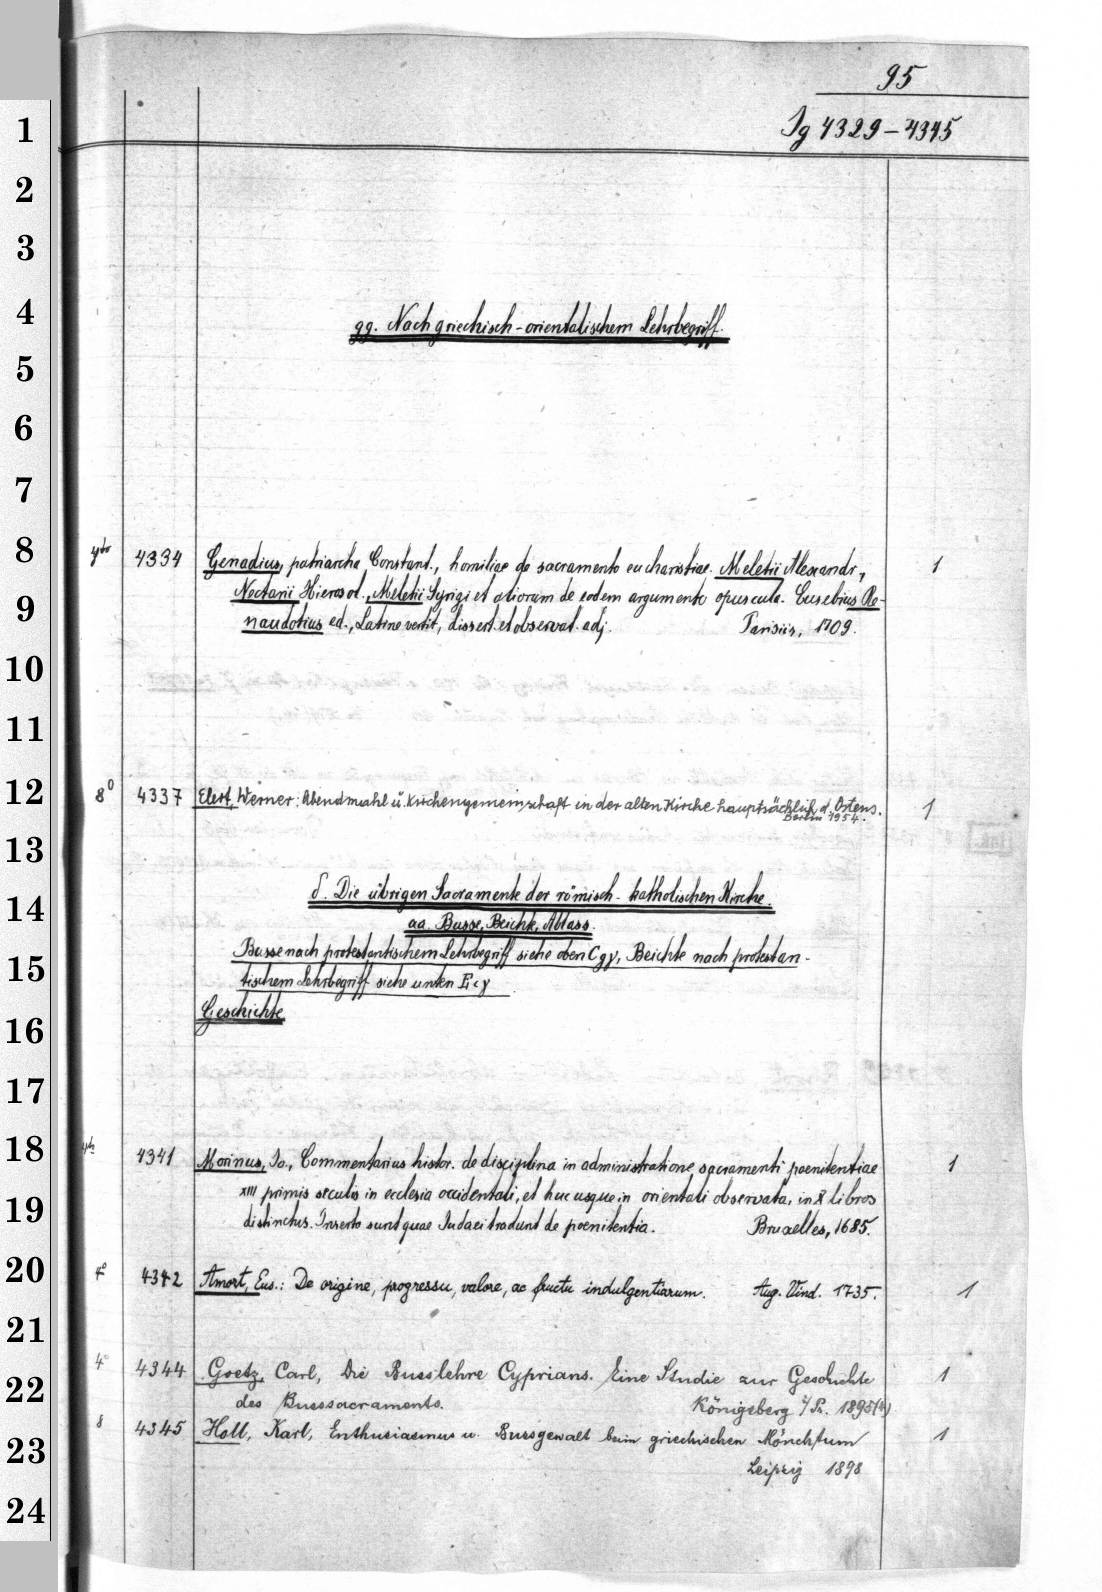 95
Ig 4329-4345
1
2
3
4
gg. Nach griechisch-orientalischem Lehrbegriff.
5
6
7
8
4to 4334 Genadius, patriarcha Constant., homiliae de sacramento eucharistiae. Meletii Alexandr., 1
9
Nectarii Hierosol., Meletii Syrigi et aliorum de eodem argumento opuscula. Eusebius Re-
naudotius ed., Latine vertit, dissert. et observat. adj. Parisiis, 1709.
10
11
12
8° 4337 Elert, Werner: Abendmahl u. Kirchengemeinschaft in der alten Kirche hauptsächlich d. Ostens. 1
Berlin 1954.
13
14
δ. Die übrigen Sacramente der römisch-katholischen Kirche.
aa. Busse, Beichte, Ablass.
15
Busse nach protestantischem Lehrbegriff siehe oben Cgγ, Beichte nach protestan-
tischem Lehrbegriff siehe unten Ecγ
16
Geschichte
17
18
4to 4341 Morinus, Jo., Commentarius histor. de disciplina in administratione sacramenti poenitentiae 1
19
XIII primis seculis in ecclesia occidentali, et huc usque in orientali observata, in X libros
distinctus. Inserto sunt quae Judaei tradunt de poenitentia. Bruxelles, 1685.
20
4° 4342 Amort, Eus.: De origine, progressu, valore, ac fructu indulgentiarum. Aug. Vind. 1735. 1
21
22
4° 4344 Goetz, Carl, Die Busslehre Cyprians. Eine Studie zur Geschichte 1
des Busssacraments. Königsberg i/Pr. 1895
23
8 4345 Holl, Karl, Enthusiasmus u. Bussgewalt beim griechischen Mönchtum 1
Leipzig 1898
24